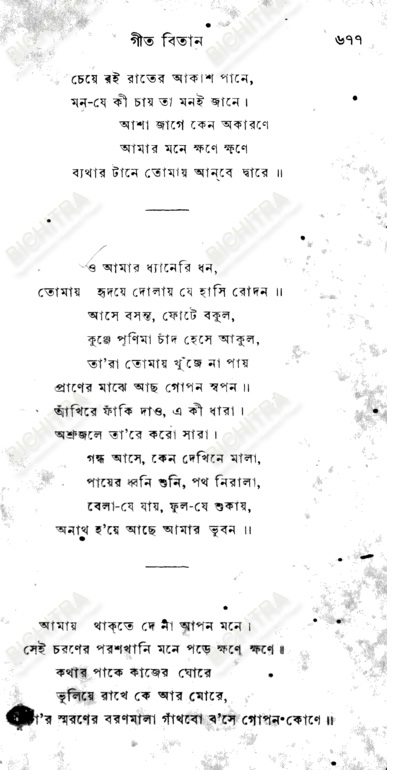 গীত বিতান ৬৭৭
চেয়ে রই রাতের আকাশ পানে,
মন-যে কী চায় তা মনই জানে।
আশা জাগে কেন অকারণে
আমার মনে ক্ষণে ক্ষণে
ব্যথার টানে তোমায় আন্‌বে দ্বারে॥
ও আমার ধ্যানেরি ধন,
তোমায় হৃদয়ে দোলায় যে হাসি রোদন॥
আসে বসন্ত, ফোটে বকুল,
কুঞ্জে পূর্ণিমা চাঁদ হেসে আকুল,
তা'রা তোমায় খুঁজে না পায়
প্রাণের মাঝে আছ গোপন স্বপন॥
আঁখিরে ফাঁকি দাও, এ কী ধারা।
অশ্রুজলে তা'রে করো সারা।
গন্ধ আসে, কেন দেখিনে মালা,
পায়ের ধ্বনি শুনি, পথ নিরালা,
বেলা-যে যায়, ফুল-যে শুকায়,
অনাথ হ'য়ে আছে আমার ভুবন॥
আমায় থাক্‌তে দে না আপন মনে।
সেই চরণের পরশখানি মনে পড়ে ক্ষণে ক্ষণে॥
কথার পাকে কাজের ঘোরে
ভুলিয়ে রাখে কে আর মোরে,
তা'র স্মরণের বরণমালা গাঁথবো ব'সে গোপন কোণে॥
BICHITRA
BICHITRA
BICHITRA
BICHITRA
BICHITRA
BICHITRA